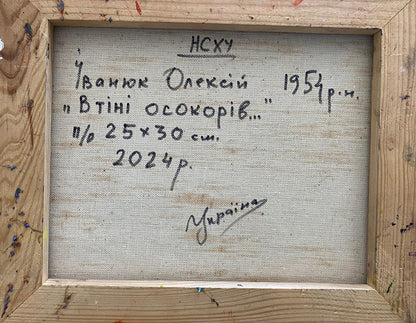 НСХУ
Іванюк Олексій 1954 р.н.
"В тіні осокорів..."
п/о 25×30 см.
2024р.
Україна